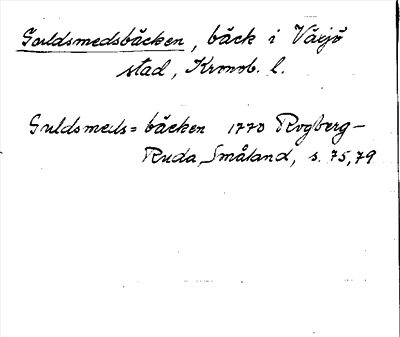 Guldsmedsbäcken, bäck i Växjö
stad, Kronob. l.
Guldsmeds=bäcken 1770 Rogberg-
Ruda, Småland, s. 75,79